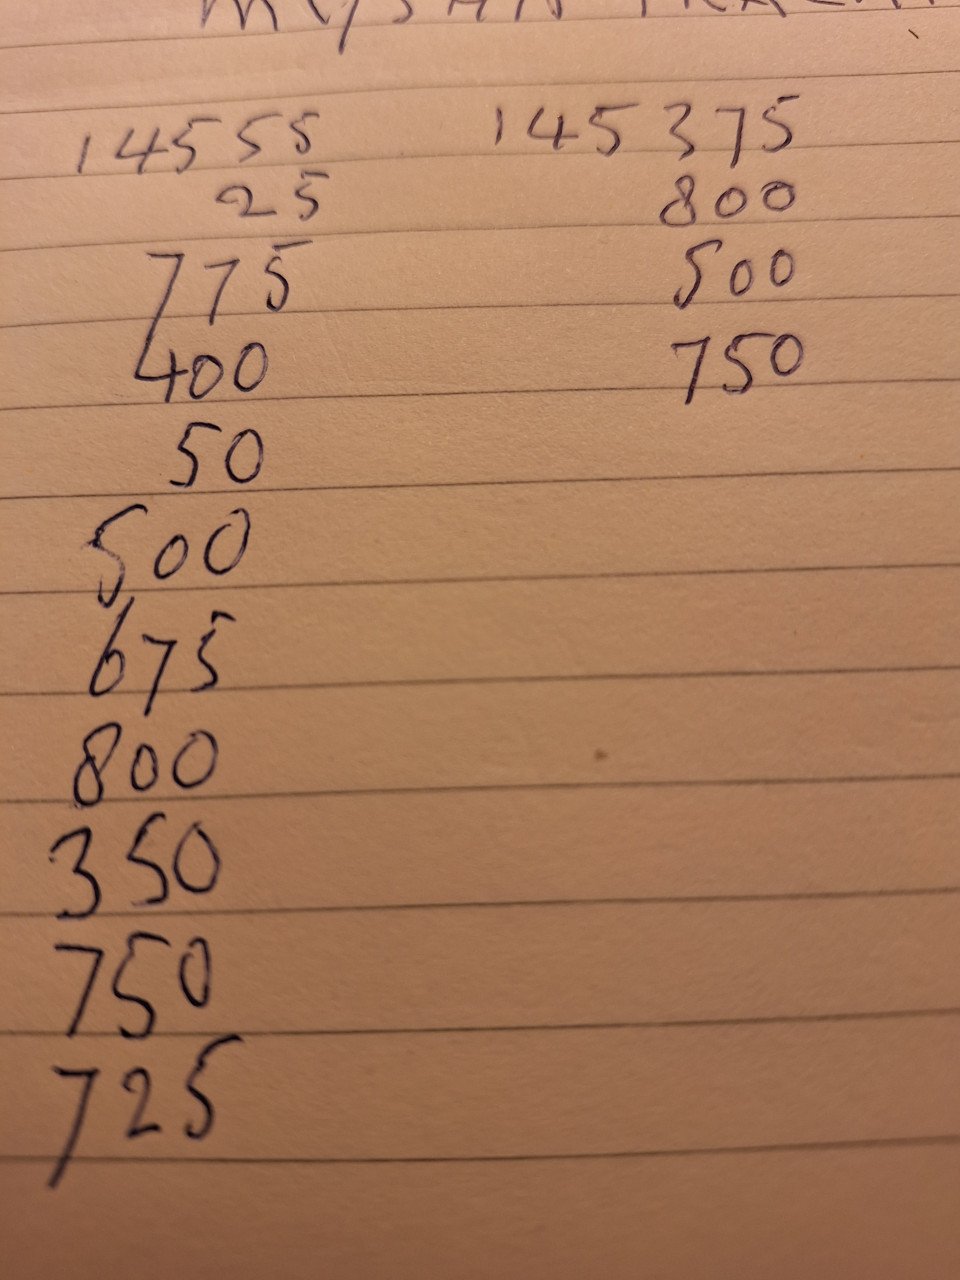 14555
25
775
400
50
500
675
800
350
750
725
145375
800
500
750